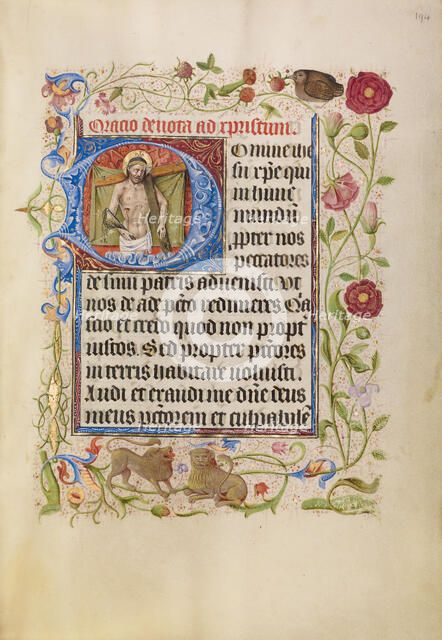 194
Oracio deuota ad xpristum.
Domine ihe
su xpe qui
in hunc
mundū
ppter nos
peccatores
de sinu patris aduenisti. Vt
nos de ade pctō redimeres. Qia
scio et credo quod non propt
iustos. Sed propter pctores
in terris habitare voluisti
Audi et exaudi me dne deus
meus pctorem et culpabilē